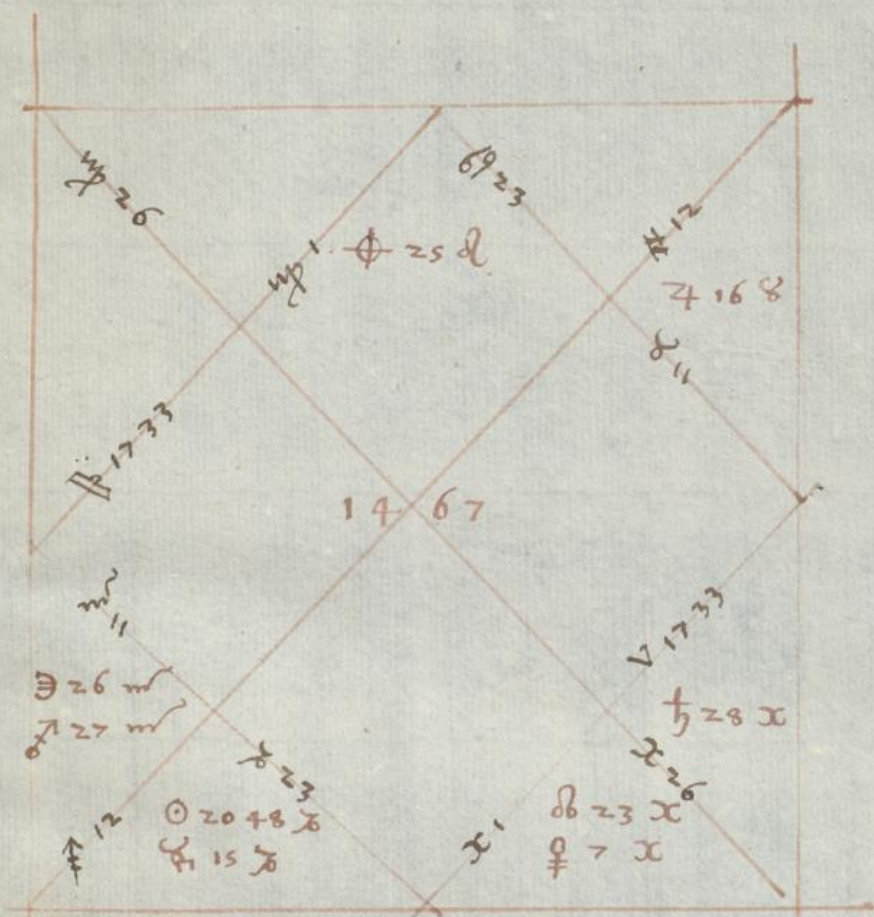 ♍ 26
♋ 23
♊ 12
♍ 1
⊕ 25 ♌
♃ 16 ♉
♉ 11
♎ 17 33
1467
♏ 11
♈ 17 33
☽ 26 ♏
♂ 27 ♏
♄ 28 ♓
♑ 23
♓ 26
♐ 12
☉ 20 48 ♑
15 ♑
♓ 1
☊ 23 ♓
♀ 7 ♓